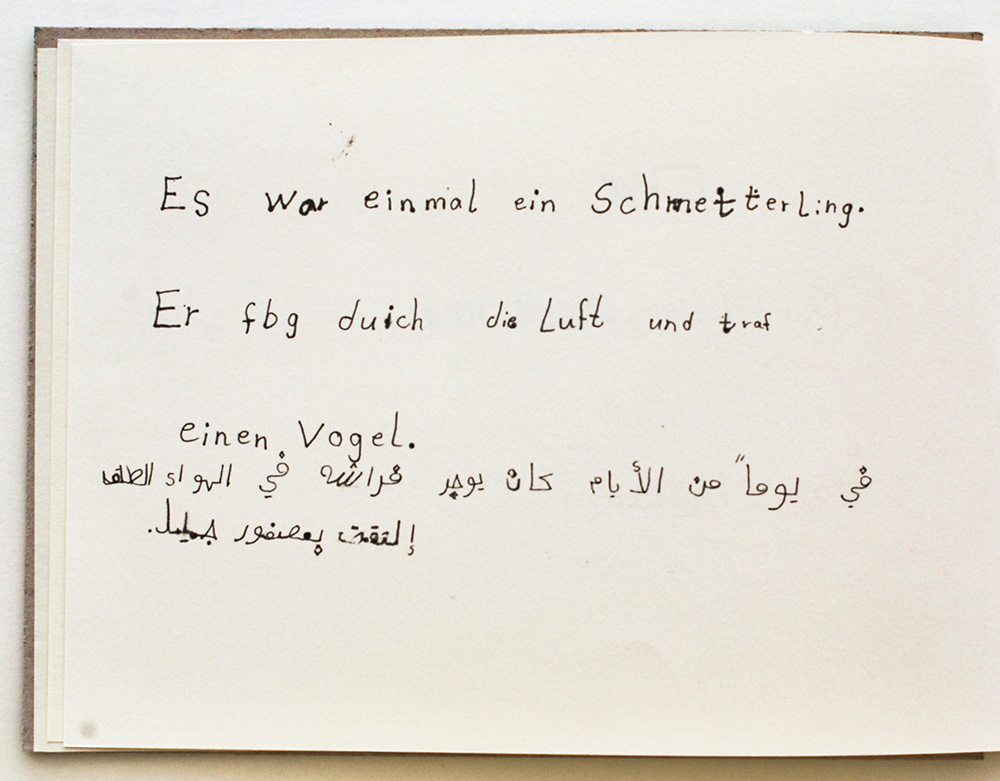 Es war einmal ein Schmetterling.
Er fbg duich die Luft und traf
einen Vogel.
في يوماً من الأيام كان يوجد فراشه في الهواء الطلق
إلتقت بعصفور جميل.